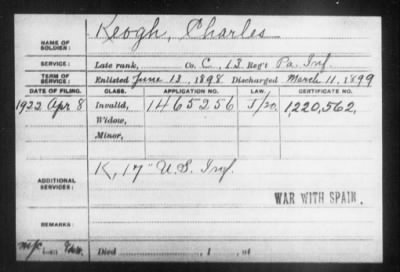 NAME OF SOLDIER: Keogh, Charles
SERVICE: Late rank, Co. C, 13 Reg't Pa. Inf.
TERM OF SERVICE: Enlisted June 13, 1898 Discharged March 11, 1899
DATE OF FILING. CLASS. APPLICATION NO. LAW. CERTIFICATE NO.
1922 Apr 8 Invalid, 1465256 J/20. 1,220,562.
Widow,
Minor,
ADDITIONAL SERVICES: K, 17" U.S. Inf.
WAR WITH SPAIN.
REMARKS:
Died , 1 , at